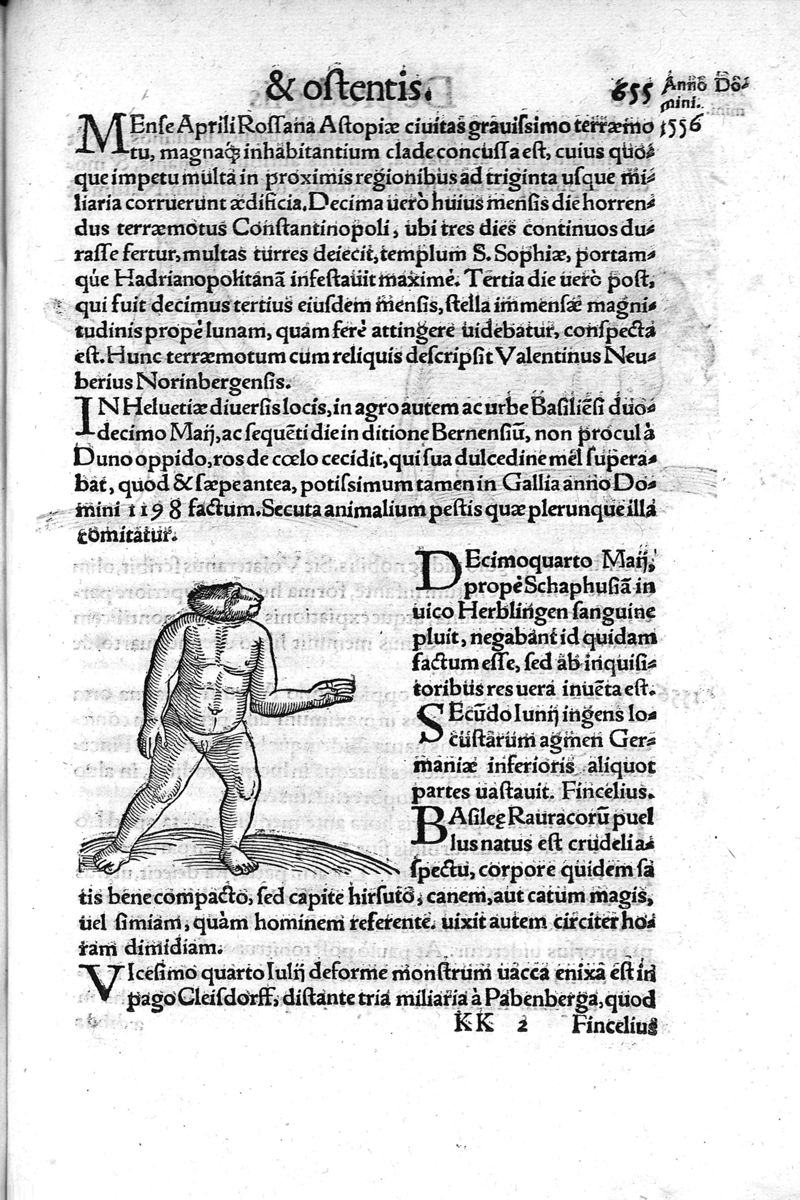 & ostentis. 655 Anno Do-
mini.
MEnse Aprili Rossana Astopiæ ciuitas grauissimo terræmo 1556
tu, magnaq́; inhabitantium clade concussa est, cuius quo-
que impetu multa in proximis regionibus ad triginta usque mi-
liaria corruerunt ædificia. Decima uerò huius mensis die horren-
dus terræmotus Constantinopoli, ubi tres dies continuos du-
rasse fertur, multas turres deiecit, templum S. Sophiæ, portam-
qúe Hadrianopolitanã infestauit maximè. Tertia die uerò post,
qui fuit decimus tertius eiusdem mensis, stella immensæ magni-
tudinis propè lunam, quam ferè attingere uidebatur, conspecta
est. Hunc terræmotum cum reliquis descripsit Valentinus Neu-
berius Norinbergensis.
IN Heluetiæ diuersis locis, in agro autem ac urbe Basiliẽsi duo-
decimo Maij, ac sequẽti die in ditione Bernensiũ, non procul à
Duno oppido, ros de cœlo cecidit, qui sua dulcedine mel supera-
bat, quod & sæpe antea, potissimum tamen in Gallia anno Do-
mini 1198 factum. Secuta animalium pestis quæ plerunque illa
comitatur.
DEcimoquarto Maij,
propè Schaphusiã in
uico Herblingen sanguine
pluit, negabant id quidam
factum esse, sed ab inquisi-
toribus res uera inuẽta est.
SEcũdo Iunij ingens lo-
custarum agmen Ger-
maniæ inferioris aliquot
partes uastauit. Fincelius.
BAsileę Rauracorũ puel
lus natus est crudeli a-
spectu, corpore quidem sa
tis bene compacto, sed capite hirsuto, canem, aut catum magis,
uel simiam, quàm hominem referente. uixit autem circiter ho-
ram dimidiam.
VIcesimo quarto Iulij deforme monstrum uacca enixa est in
pago Cleisdorff, distante tria miliaria à Pabenberga, quod
KK 2 Fincelius